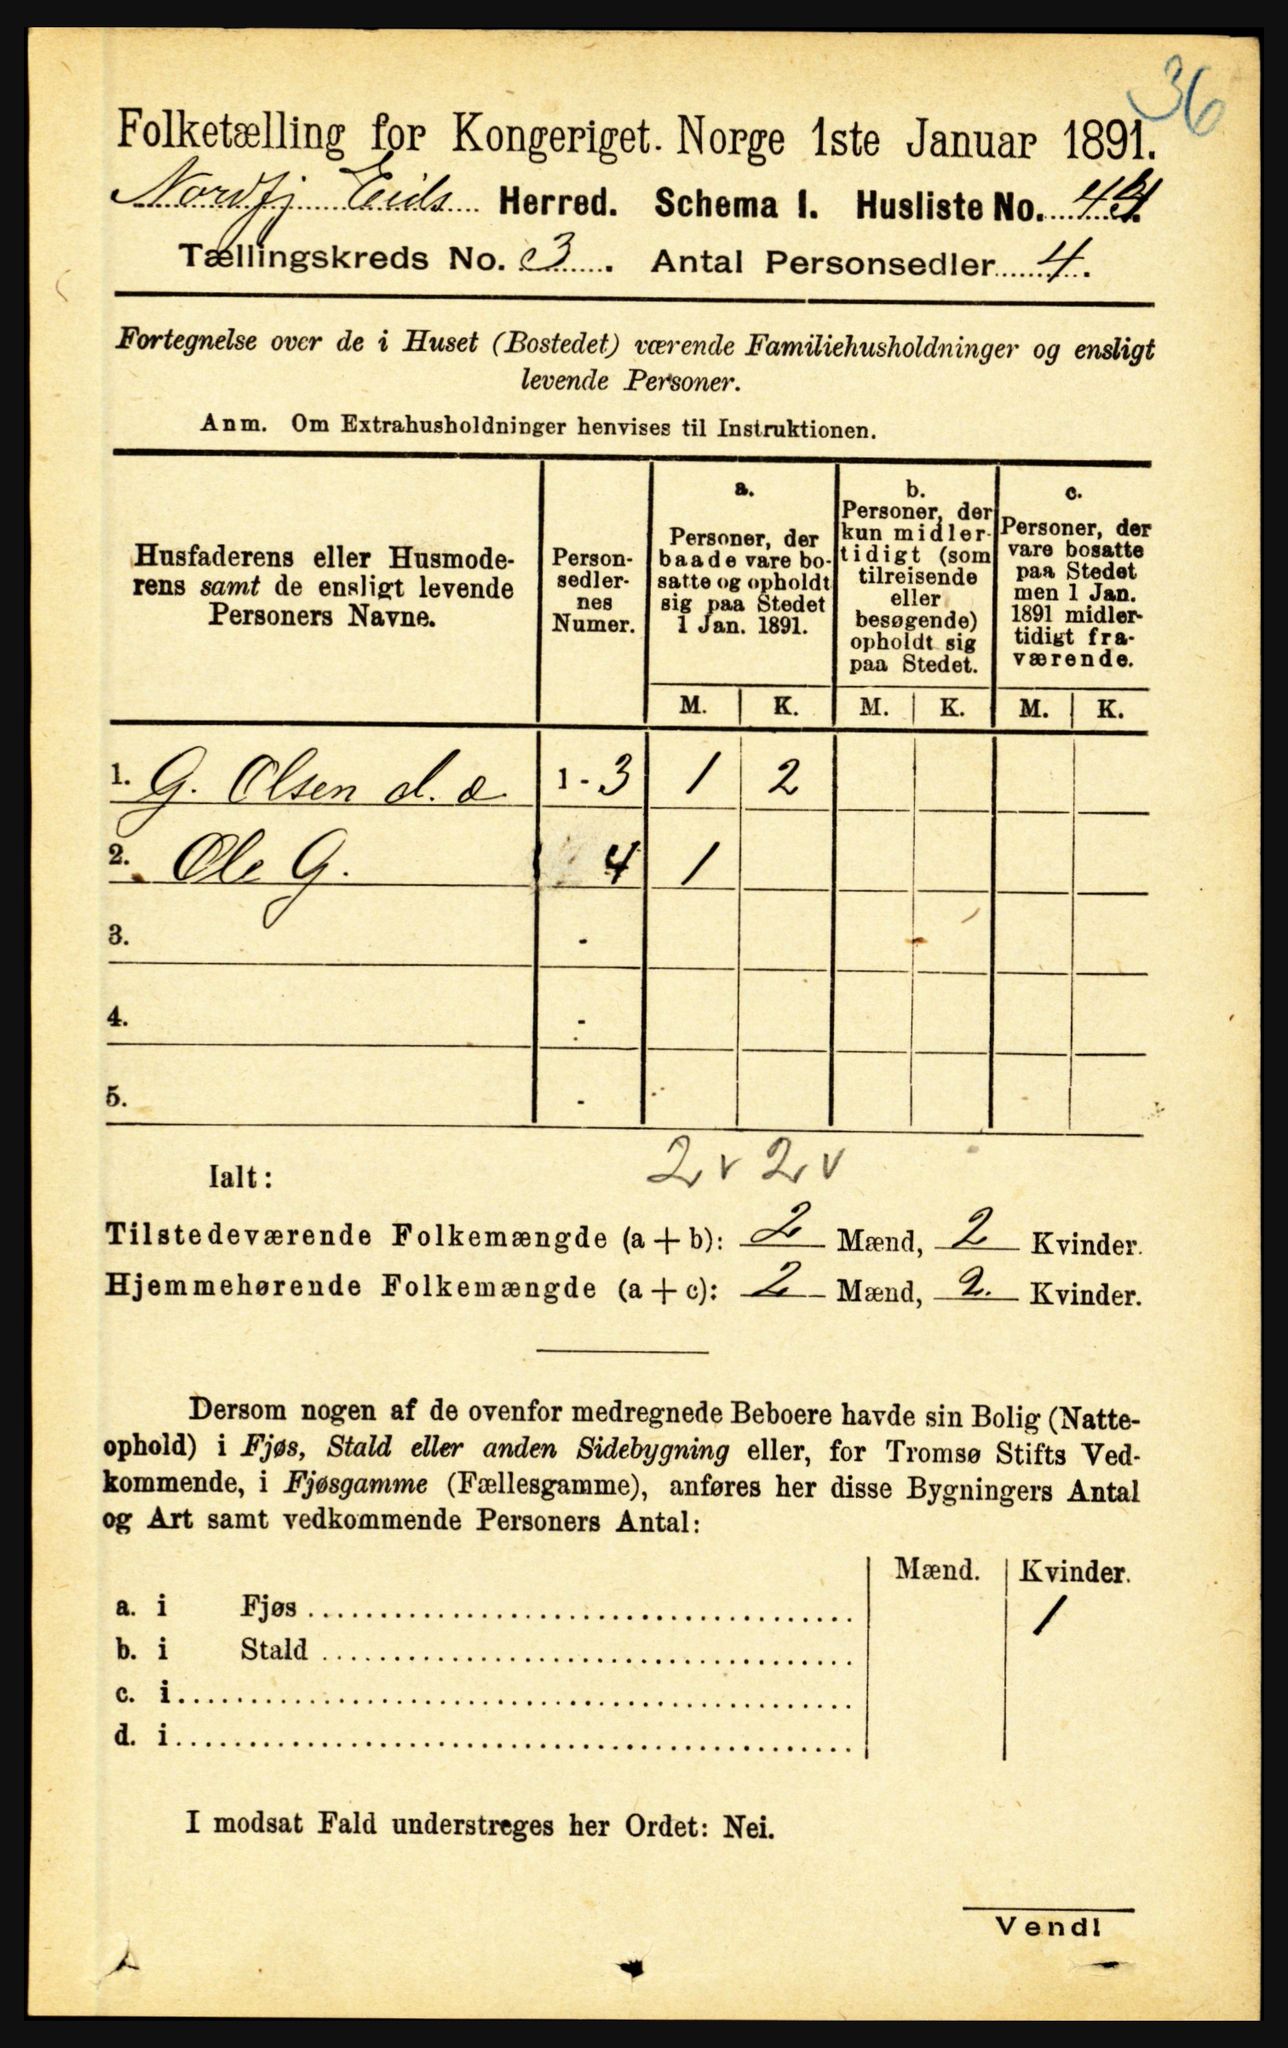 36
Folketælling for Kongeriget Norge 1ste Januar 1891.
Nordfj Eids Herred. Schema I. Husliste No. 44
Tællingskreds No. 3. Antal Personsedler 4.
Fortegnelse over de i Huset (Bostedet) værende Familiehusholdninger og ensligt
levende Personer.
Anm. Om Extrahusholdninger henvises til Instruktionen.
Husfaderens eller Husmode-
rens samt de ensligt levende
Personers Navne.
Person-
sedler-
nes
Numer.
a.
Personer, der
baade vare bo-
satte og opholdt
sig paa Stedet
1 Jan. 1891.
b.
Personer, der
kun midler-
tidigt (som
tilreisende
eller
besøgende)
opholdt sig
paa Stedet.
c.
Personer, der
vare bosatte
paa Stedet
men 1 Jan.
1891 midler-
tidigt fra-
værende.
M. K. M. K. M. K.
1. G. Olsen d. æ. 1 - 3 1 2
2. Ole G. 4 1
3. -
4. -
5. -
2 v 2 v
Ialt:
Tilstedeværende Folkemængde (a + b): 2 Mænd, 2 Kvinder.
Hjemmehørende Folkemængde (a + c): 2 Mænd, 2. Kvinder.
Dersom nogen af de ovenfor medregnede Beboere havde sin Bolig (Natte-
ophold) i Fjøs, Stald eller anden Sidebygning eller, for Tromsø Stifts Ved-
kommende, i Fjøsgamme (Fællesgamme), anføres her disse Bygningers Antal
og Art samt vedkommende Personers Antal:
Mænd. Kvinder.
a. i Fjøs 1
b. i Stald
c. i
d. i
I modsat Fald understreges her Ordet: Nei.
Vend!